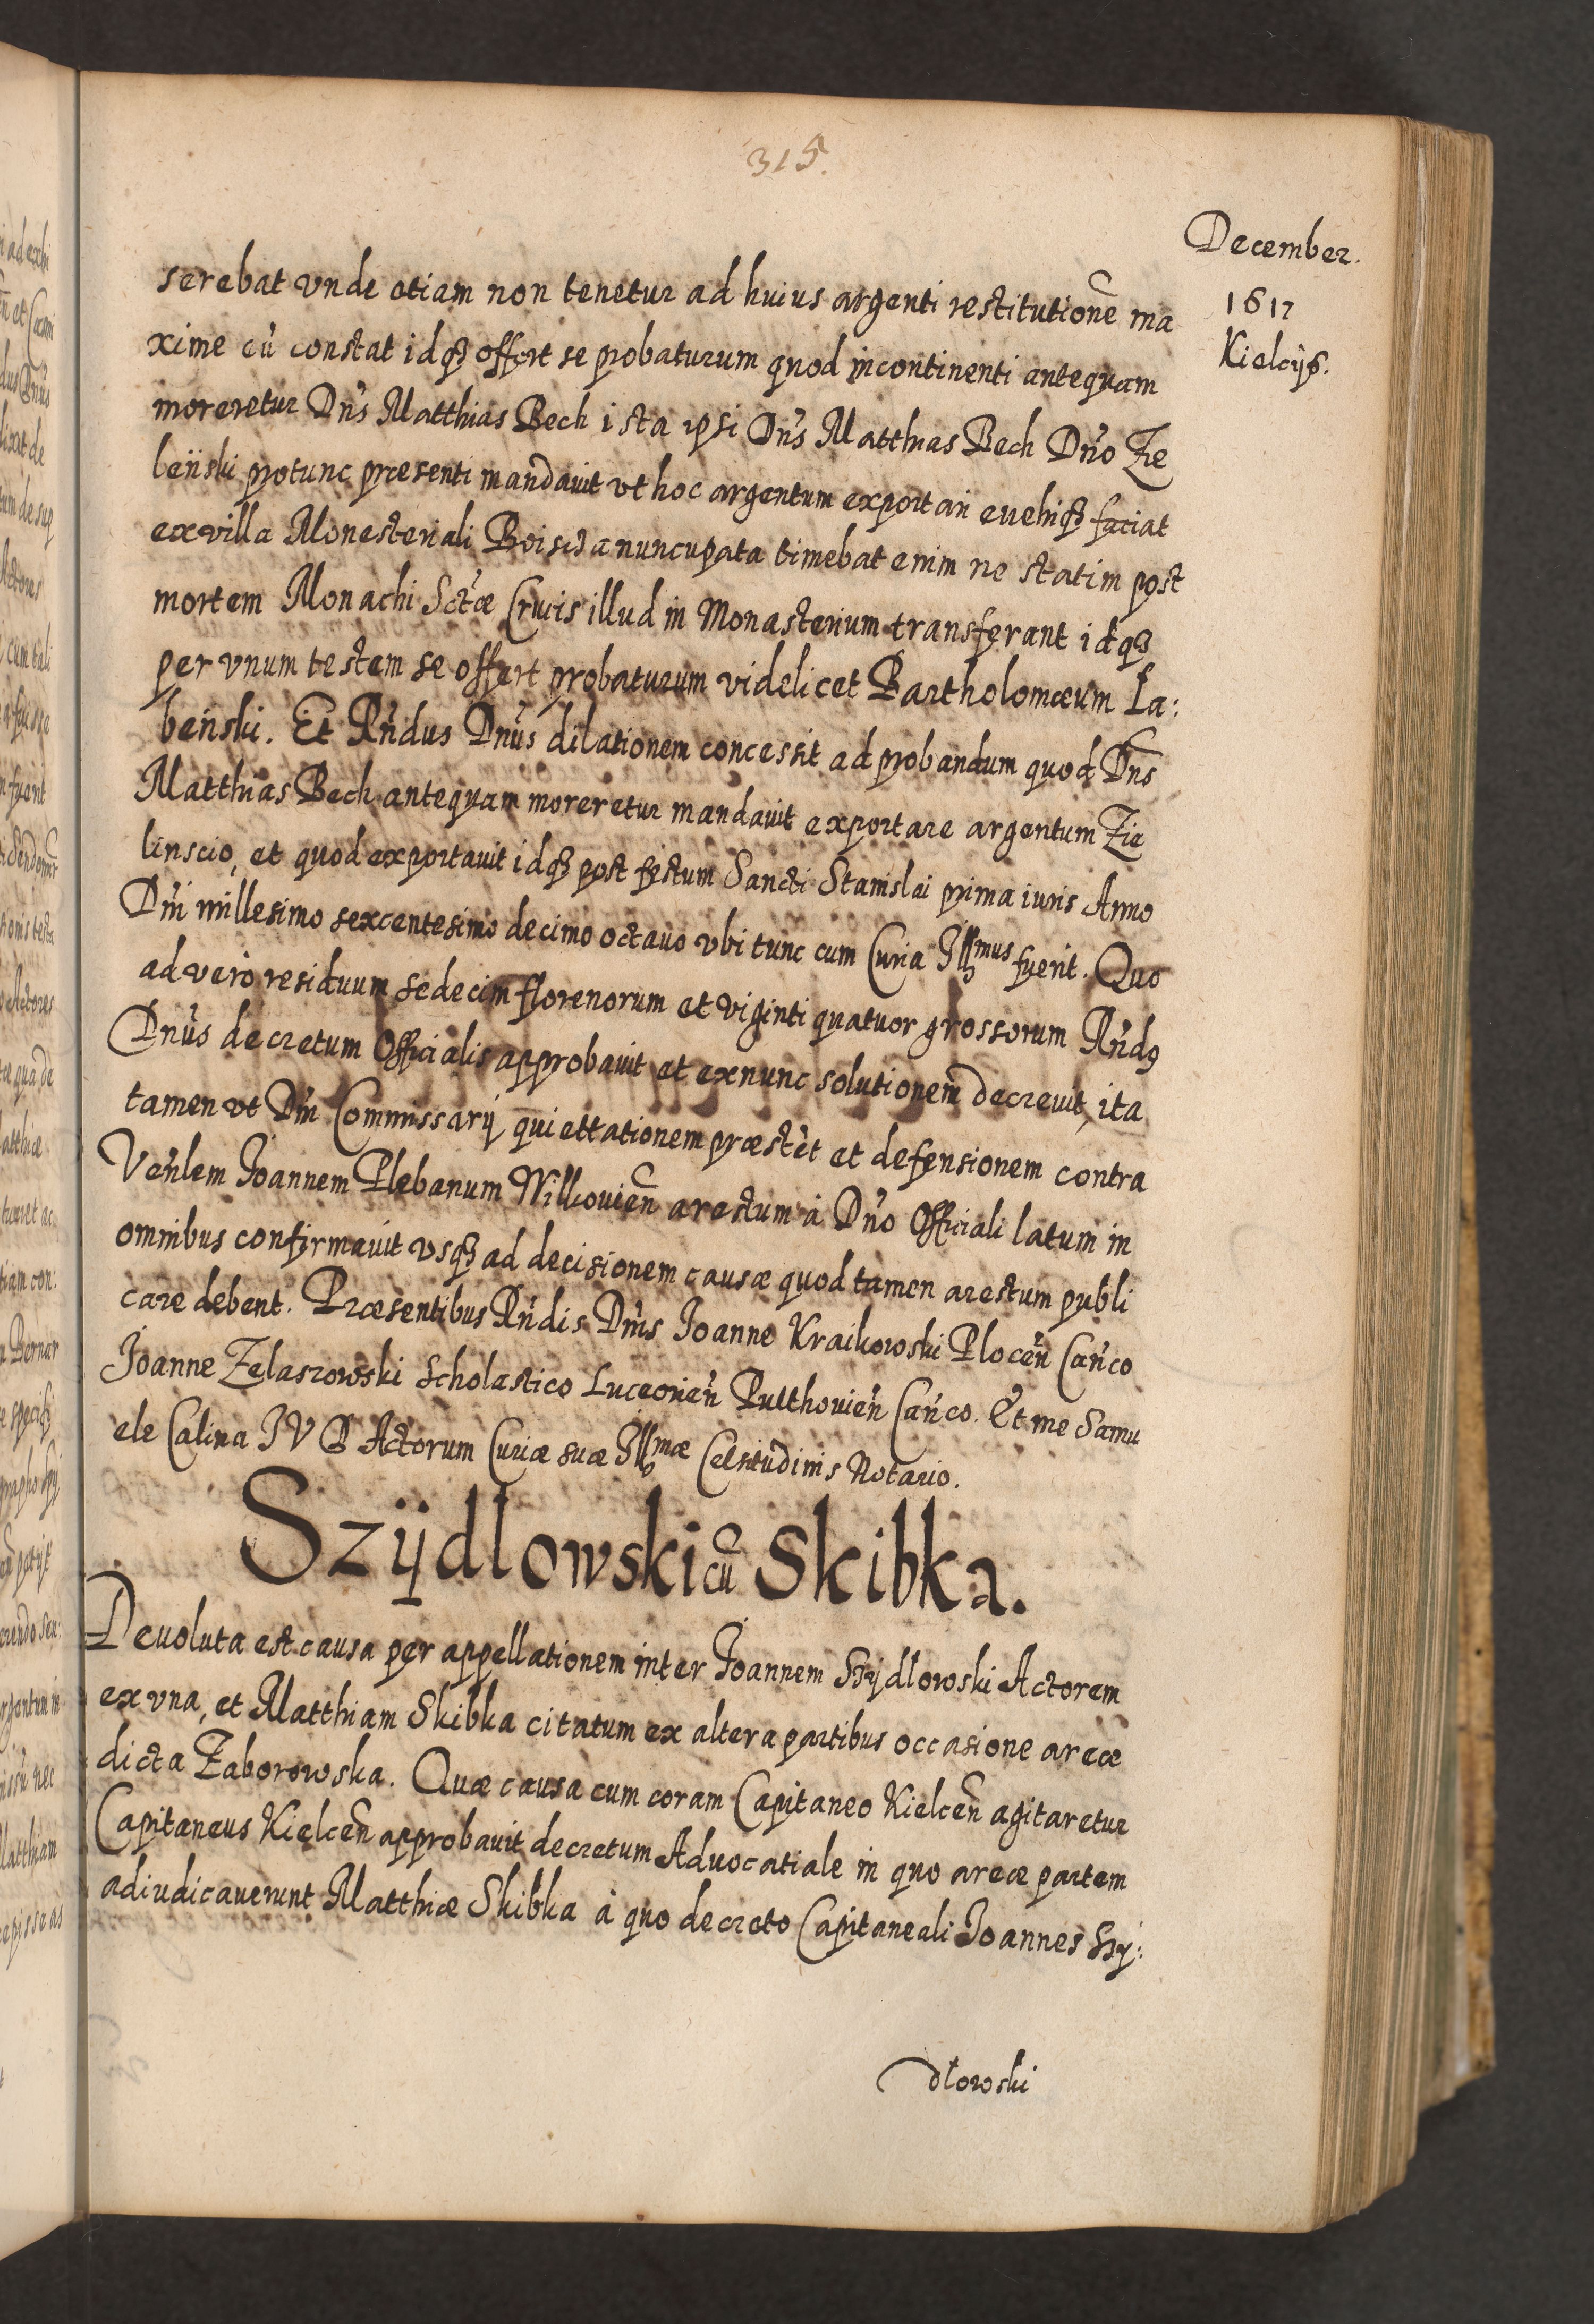 315.
December.
1617
Kielcijs.
serebat vnde etiam non tenetur ad huius argenti restitutionē ma
xime cù constat idqȝ offert se probaturum quod incontinenti antequam
moreretur Dn̄s Matthias Bech ista ipsi Dn̄s Matthias Bech Dn̄o Zie
leński protunc præsenti mandauit vt hoc argentum exportari euehiqȝ faciat
ex villa Monesteriali nuncupata timebat enim ne statim post
mortem Monachi Sctæ Crucis illud in Monasterium transferant idqȝ
per vnum testem se offert probaturum videlicet Bartholomæum La:
beński. Et Rn̄dus Dnūs dilationem concessit ad probandum quod Dn̄s
Matthias Bech antequam moreretur mandauit exportare argentum Zie
linscio, et quod exportauit idqȝ post festum Sancti Stanislai prima iuris Anno
Dn̄i millesimo sexcentesimo decimo octauo vbi tunc cum Curia Illmus fuerit. Quo
ad verò residuum sedecim florenorum et viginti quatuor grossorum Rn̄dꝯ
Dnūs decretum Officialis approbauit et exnunc solutionem decreuit, ita
tamen vt Dn̄i Commissarij quiettationem præstēt et defensionem contra
Ven̄lem Joannem Plebanum Wilkouien̄ arestum à Dn̄o Officiali latum in
omnibus confirmauit vsqȝ ad decisionem causæ quod tamen arestum publi
care debent. Præsentibus Rn̄dis Dn̄is Joanne Kraikowski Plocen̄ Can̄co
Joanne Zelaszowski Scholastico Luceorien̄ Pulthouien̄ Can̄co. Et me Samu
ele Calina J V D Actorum Curiæ suæ Illmæ Celsitudinis Notario.
Szÿdlowski cū Skibka.
Deuoluta est causa per appellationem inter Joannem Szÿdłowski Actorem
ex vna, et Matthiam Skibka citatum ex altera partibus occasione areæ
dicta Zaborowska. Quæ causa cum coram Capitaneo Kielcen̄ agitaretur
Capitaneus Kielcen̄ approbauit decretum Aduocatiale in quo areæ partem
adiudicauerunt Matthiæ Skibka à quo decreto Capitaneali Joannes Szÿ:
dłowski